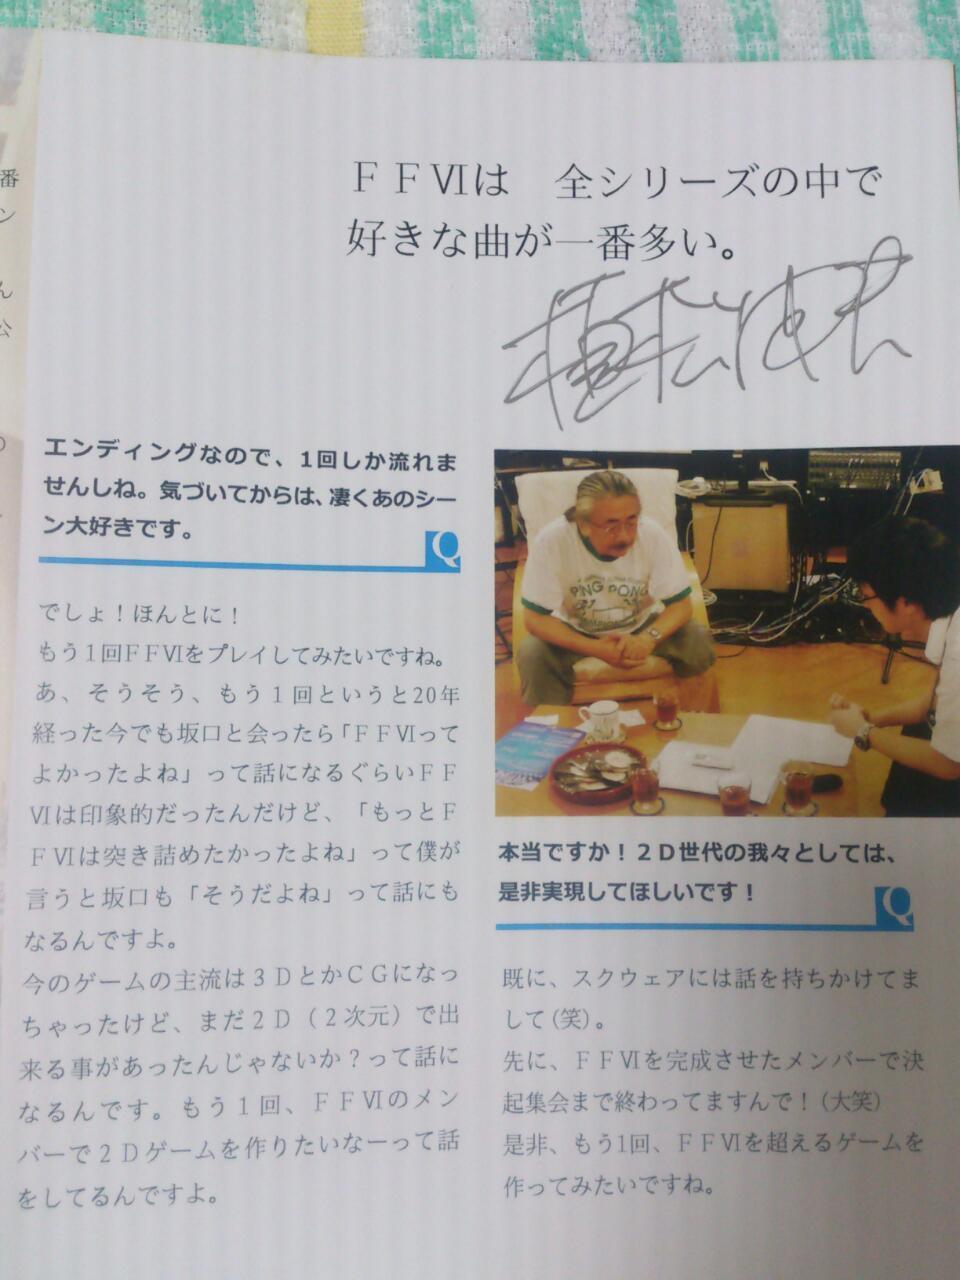 番
ン
ん
公
の
ＦＦⅥは　全シリーズの中で
好きな曲が一番多い。
植松伸夫
エンディングなので、1回しか流れま
せんしね。気づいてからは、凄くあのシー
ン大好きです。
Q
でしょ！ほんとに！
もう1回ＦＦⅥをプレイしてみたいですね。
あ、そうそう、もう１回というと20年
経った今でも坂口と会ったら「ＦＦⅥって
よかったよね」って話になるぐらいＦＦ
Ⅵは印象的だったんだけど、「もっとＦ
ＦⅥは突き詰めたかったよね」って僕が
言うと坂口も「そうだよね」って話にも
なるんですよ。
今のゲームの主流は３ＤとかＣＧになっ
ちゃったけど、まだ２Ｄ（２次元）で出
来る事があったんじゃないか？って話に
なるんです。もう１回、ＦＦⅥのメン
バーで２Ｄゲームを作りたいなーって話
をしてるんですよ。
PING PONG
本当ですか！２Ｄ世代の我々としては、
是非実現してほしいです！
Q
既に、スクウェアには話を持ちかけてま
して(笑)。
先に、ＦＦⅥを完成させたメンバーで決
起集会まで終わってますんで！(大笑)
是非、もう1回、ＦＦⅥを超えるゲームを
作ってみたいですね。